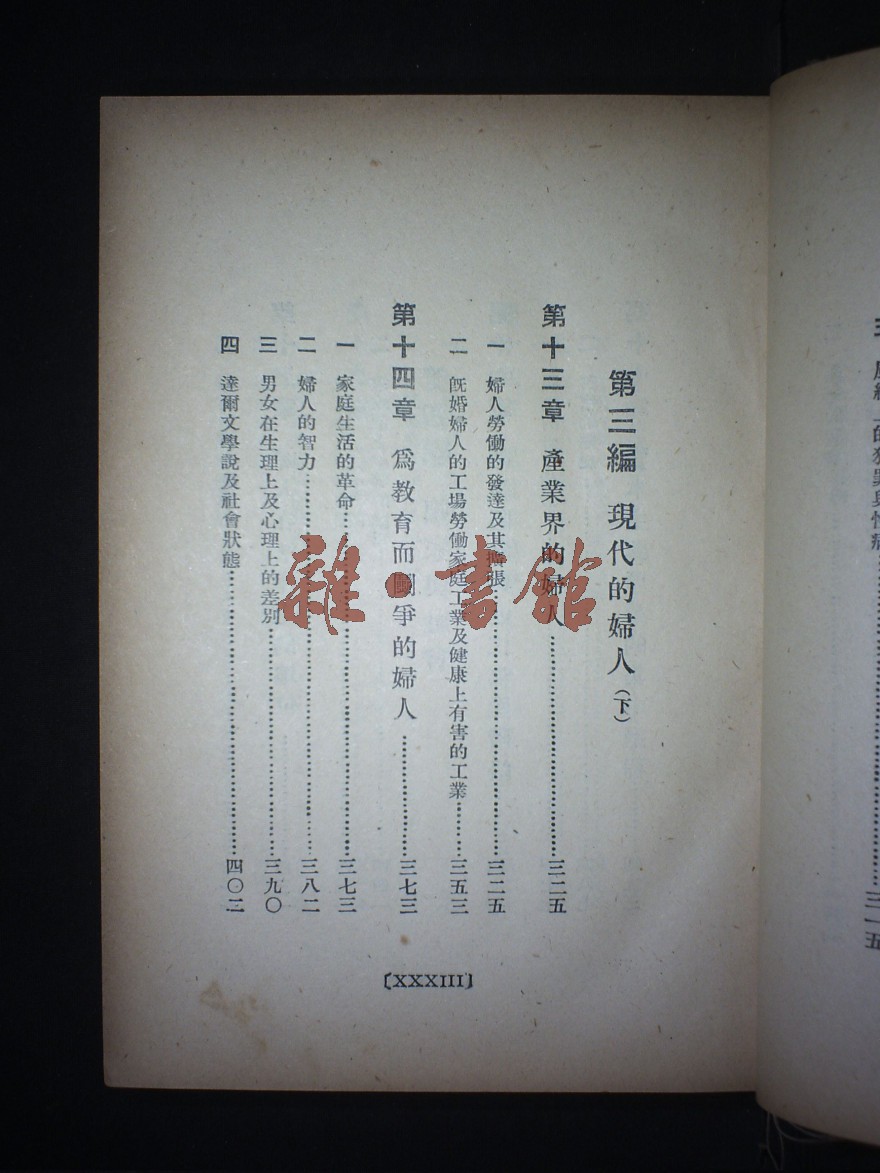 三一五
第三編 現代的婦人(下)
第十三章 產業界的婦人……三二五
一 婦人勞働的發達及其擴張……三二五
二 旣婚婦人的工場勞働家庭工業及健康上有害的工業……三五三
第十四章 爲教育而鬪爭的婦人……三七三
一 家庭生活的革命……三七三
二 婦人的智力……三八二
三 男女在生理上及心理上的差別……三九〇
四 達爾文學說及社會狀態……四〇二
〔XXXIII〕
雜·書館